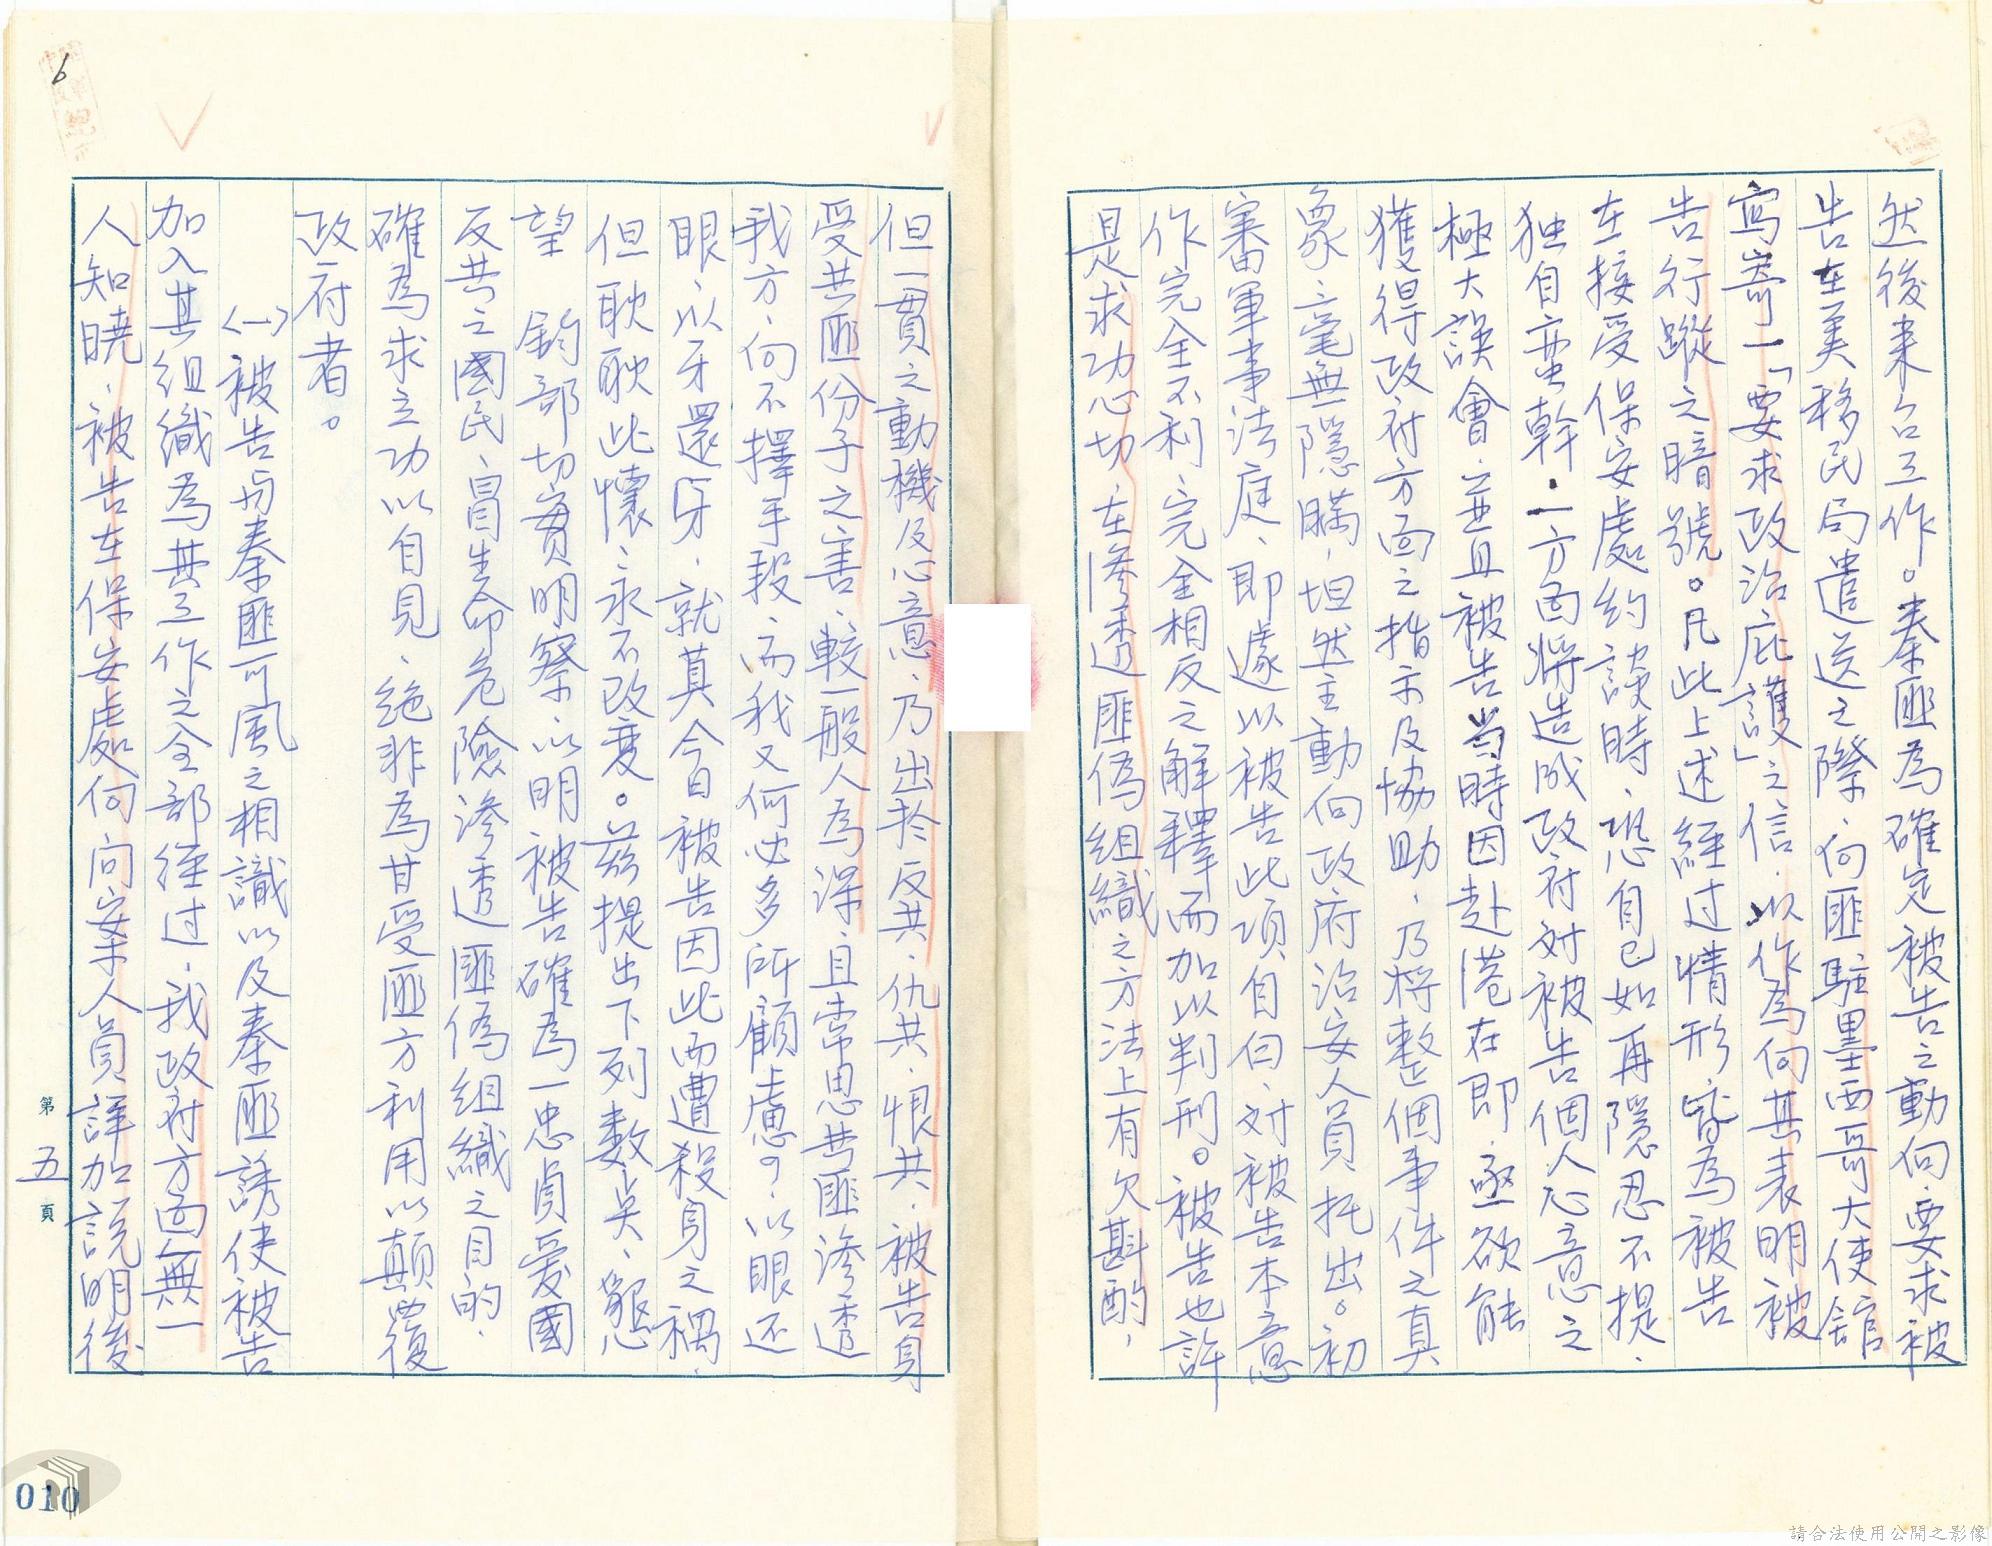 然後来台工作。秦匪為確定被告之動向、要求被
告在美移民局遣送之際、向匪駐墨西哥大使館
寫寄一「要求政治庇護」之信、以作為向其表明被
告行蹤之暗號。凡此上述經过情形皆為被告
在接受保安處約談時、恐自己如再隱忍不提、
独自蛮幹、一方面將造成政府対被告個人心意之
極大誤會、並且被告当時因赴港在即、亟欲能
獲得政府方面之指示及協助、乃將整個事件之真
象、毫無隱瞞、坦然主動向政府治安人員托出。初
審軍事法庭、即遽以被告此項自白、対被告本意
作完全不利、完全相反之解釋而加以判刑。被告也許
是求功心切、在滲透匪偽組織之方法上有欠斟酌、
但一貫之動機及心意、乃出於反共、仇共、恨共、被告身
受共匪份子之害、較一般人為深、且常思共匪滲透
我方、向不擇手段、而我又何必多所顧慮？以眼还
眼、以牙還牙、就莫今日被告因此而遭殺身之禍、
但耿耿此懷、永不改変。茲提出下列数点、懇
望　鈞部切實明察、以明被告確為一忠貞爱國
反共之國民、冒生命危險滲透匪偽組織之目的、
確為求立功以自見、絕非為甘受匪方利用以顛覆
政府者。
〈一〉被告与秦匪可風之相識以及秦匪誘使被告
加入其組織為其工作之全部经过、我政府方面無一
人知曉、被告在保安處向向案人員詳加說明後
第五頁
6
010
請合法使用公開之影像